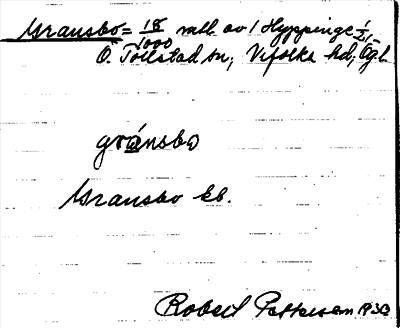 Gransbo = 18/1000 mtl av 1 Hyppinge 1/2,
Ö. Tollstad sn, Vifolka hd, Ög. l.
gránsbo
Gransbo kb.
Robert Pettersson 1933